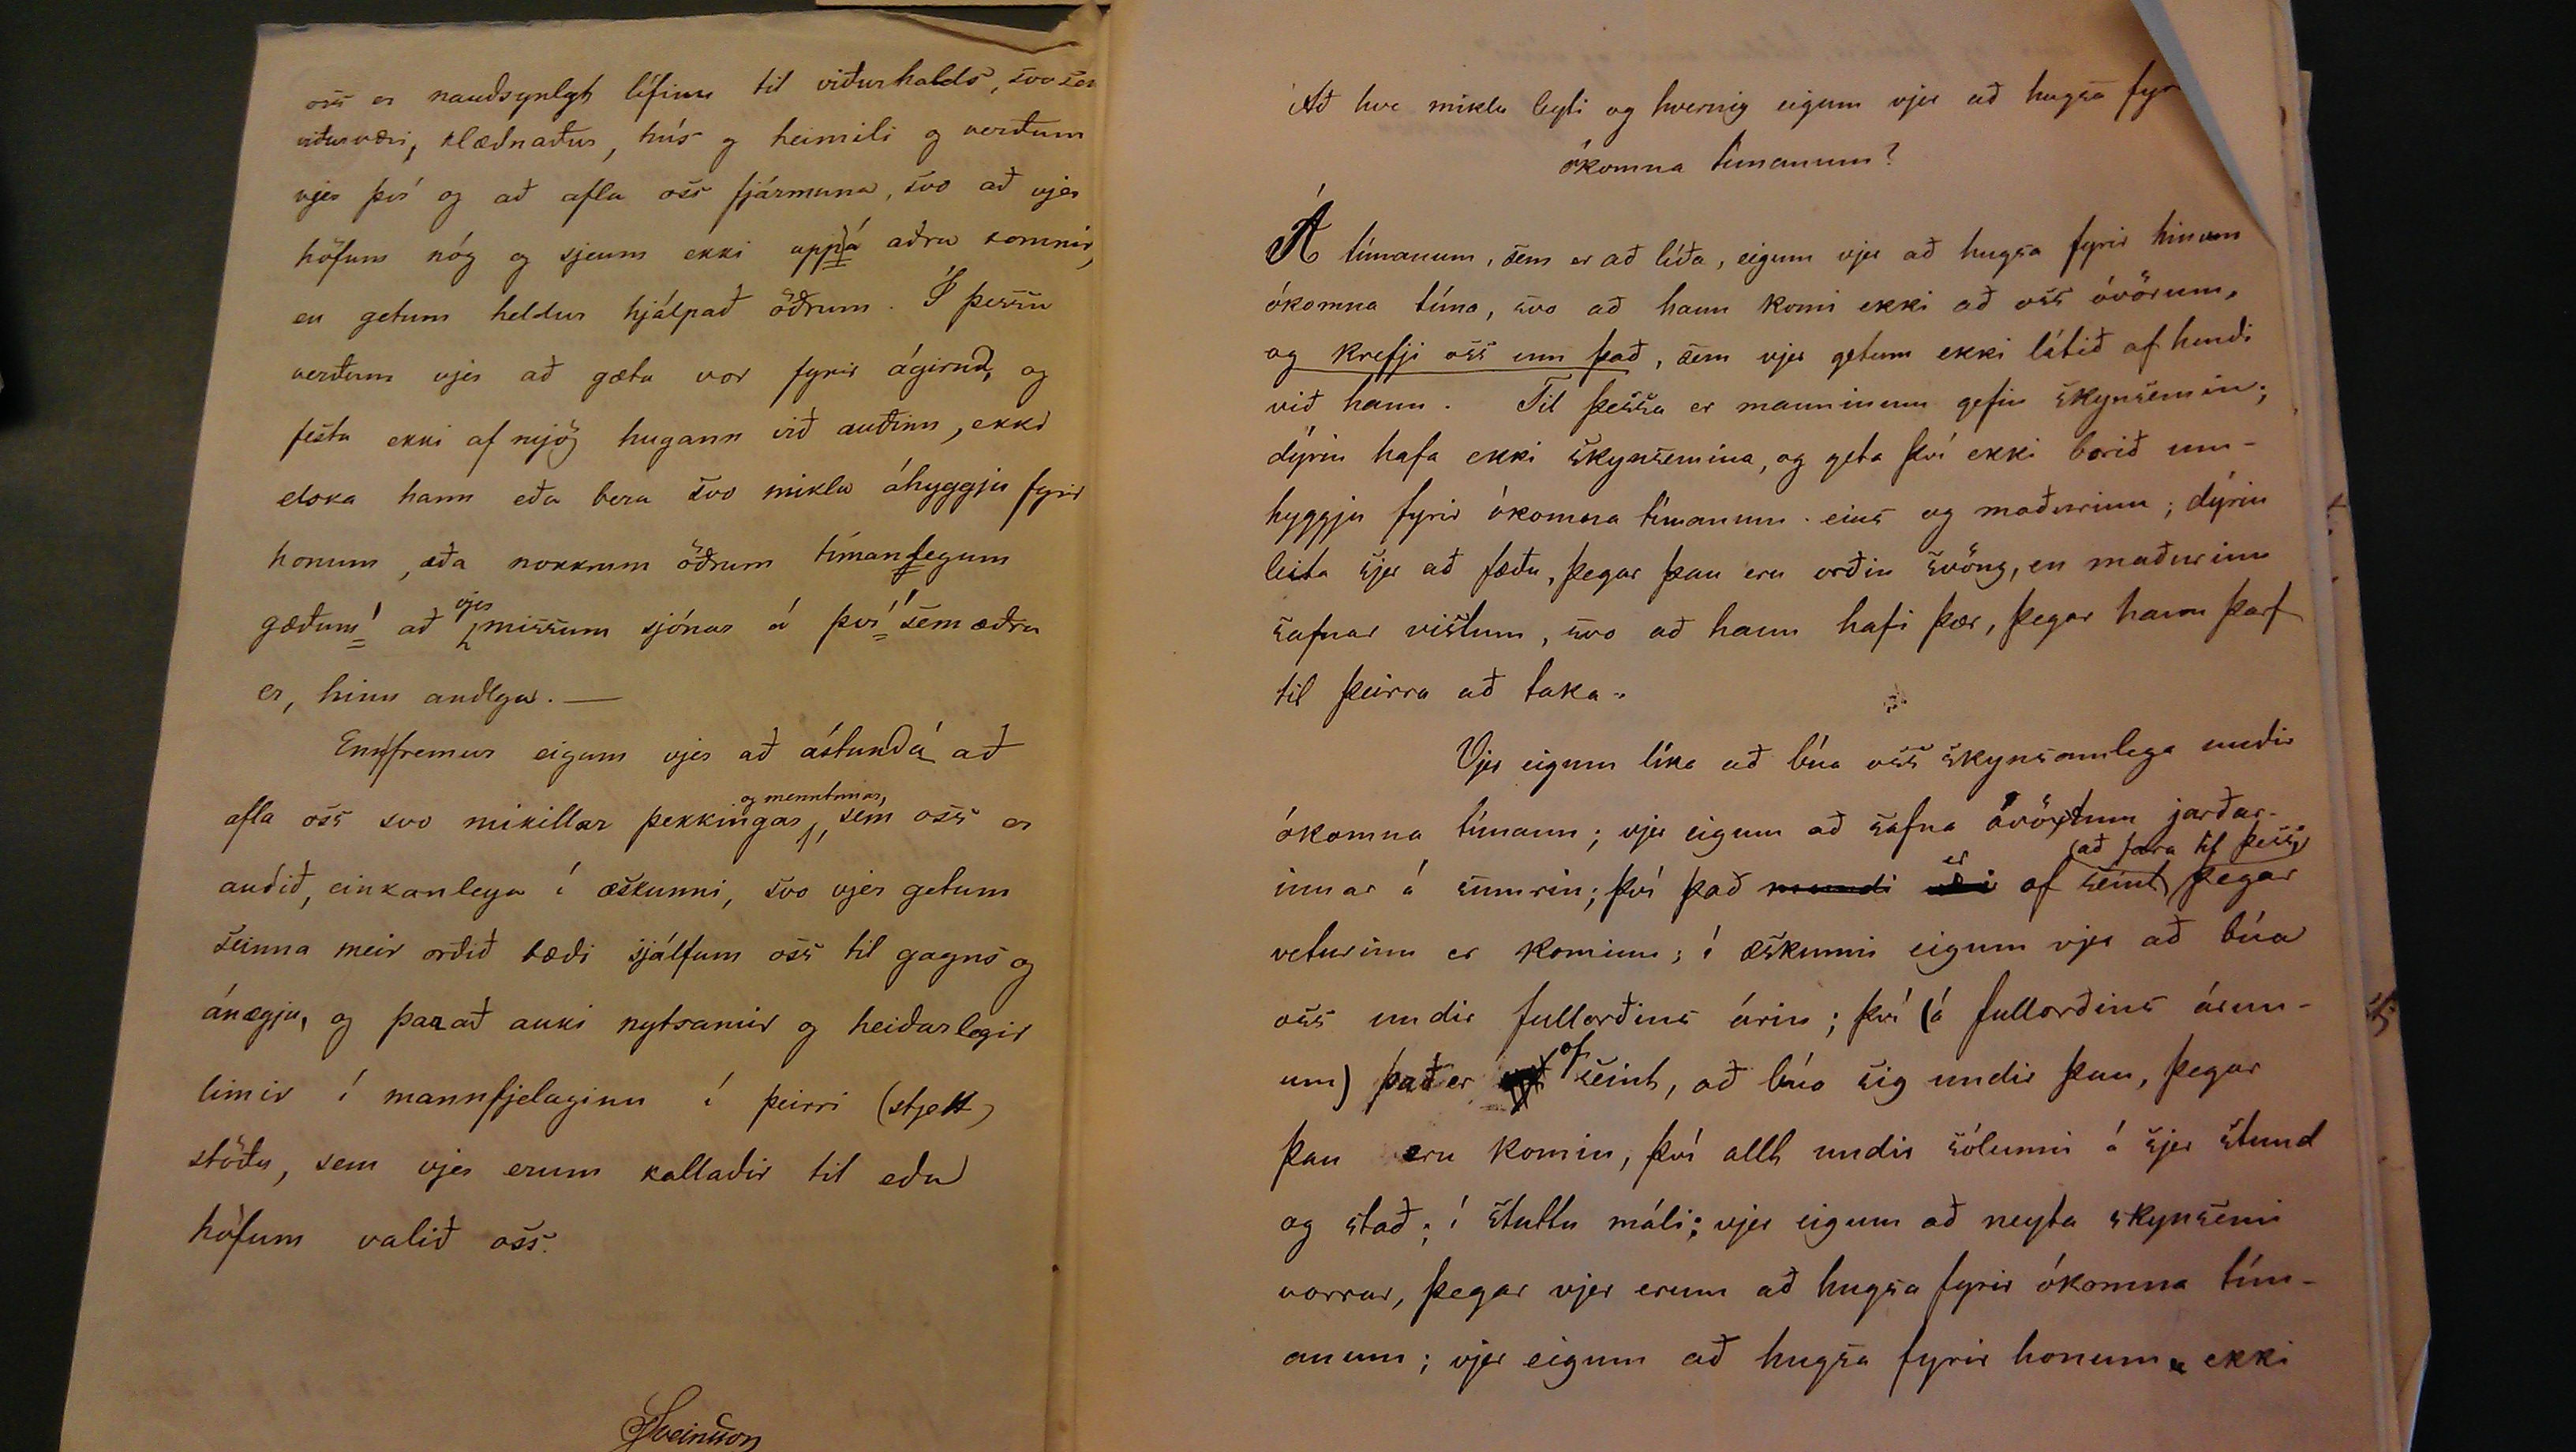 oss er nauðsynlegt lífinu til viðurhalds, svo sem
viðurværi, klæðnaður, hús og heimili og verðum
vjer því og að afla oss fjármuna, svo að vjer
höfum nóg og sjeum ekki uppá aðra komnir,
en getum heldur hjálpað öðrum. Í þessu
verðum vjer að gæta vor fyrir ágirnd, og
festa ekki of mjög hugann við auðinn, ekki
elska hann eða bera svo mikla áhyggju fyrir
honum, eða nokkrum öðrum tímanlegum
gæðum, að vjer missum sjónar á því, sem æðra
er, hinu andlega. —
Ennfremur eigum vjer að ástunda að
afla oss svo mikillar þekkingar og menntunar, sem oss er
auðið, einkanlega í æskunni, svo vjer getum
seinna meir orðið bæði sjálfum oss til gagns og
ánægju, og þar að auki nytsamir og heiðarlegir
limir í mannfjelaginu í þeirri (stjett)
stöðu, sem vjer erum kallaðir til eða
höfum valið oss.
Sveinsson
Að hve miklu leyti og hvernig eigum vjer að hugsa fyr
ókomna tímanum?
Á tímanum, sem er að líða, eigum vjer að hugsa fyrir hinum
ókomna tíma, svo að hann komi ekki að oss óvörum,
og krefji oss um það, sem vjer getum ekki látið af hendi
við hann. Til þessa er manninum gefin skynsemin;
dýrin hafa ekki skynsemina, og geta því ekki borið um-
hyggju fyrir ókomna tímanum eins og maðurinn; dýrin
leita sjer að fæðu, þegar þau eru orðin svöng, en maðurinn
safnar vistum, svo að hann hafi þær, þegar hann þarf
til þeirra að taka.
Vjer eigum líka að búa oss skynsamlega undir
ókomna tímann; vjer eigum að safna ávöxtum jarðar-
innar á sumrin; því það mundi er of seint að fara til þess, þegar
veturinn er kominn; í æskunni eigum vjer að búa
oss undir fullorðins árin; því (á fullorðins árun-
um) það er of seint, að búa sig undir þau, þegar
þau eru komin, því allt undir sólunni á sjer stund
og stað; í stuttu máli; vjer eigum að neyta skynsemi
vorrar, þegar vjer erum að hugsa fyrir ókomna tím-
anum; vjer eigum að hugsa fyrir honum, ekki